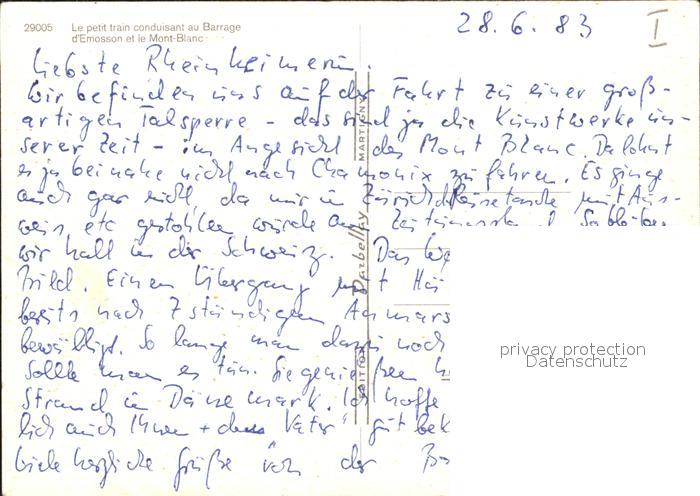 29005 Le petit train conduisant au Barrage
d'Emosson et le Mont-Blanc
28.6.83
I
Liebste Rheinheimerin.
Wir befinden uns auf der Fahrt zu einer groß-
artigen Talsperre - das sind ja die Kunstwerke un-
serer Zeit - im Angesicht des Mont Blanc. Da lohnt
es ja beinahe nicht nach Chamonix zu fahren. Es ginge
auch gar nicht, da mir in Zürich Reisetasche mit Aus-
weis, etc gestohlen wurde
wir halt in der Schweiz. Das
Bild. Einen Übergang mit
bereits nach 7 stündigem Anmars
bewältigt. So lange man dazu noch
sollte man es tun. Sie genießen
Strand in Dänemark. Ich hoffe
lich auch Ihnen + dem "Vater" gut
Viele herzliche Grüße von der
EDITION Darbellay MARTIGNY
privacy protection
Datenschutz